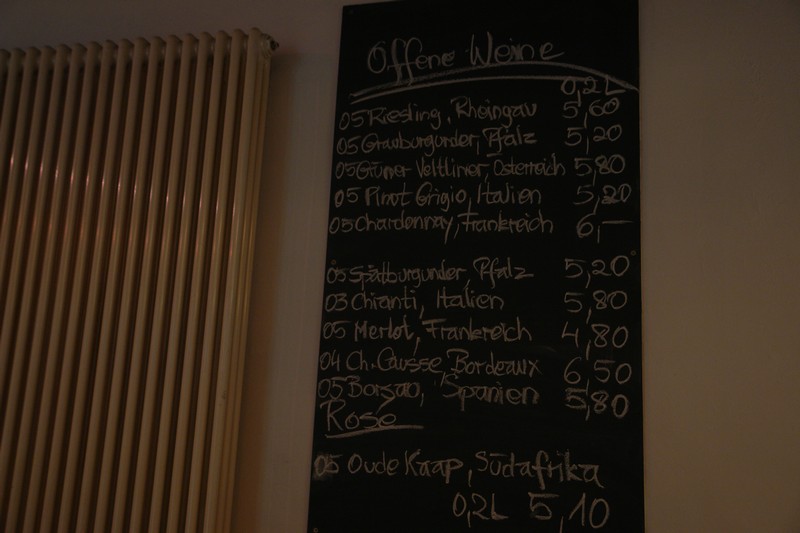 Offene Weine
0,2L
05 Riesling, Rheingau 5,60
05 Grauburgunder, Pfalz 5,20
05 Grüner Veltliner, Österreich 5,80
05 Pinot Grigio, Italien 5,20
05 Chardonnay, Frankreich 6,—
05 Spätburgunder, Pfalz 5,20
03 Chianti, Italien 5,80
05 Merlot, Frankreich 4,80
04 Ch. Causse, Bordeaux 6,50
05 Borsao, Spanien 5,80
Rosé
05 Oude Kaap, Südafrika
0,2L 5,10